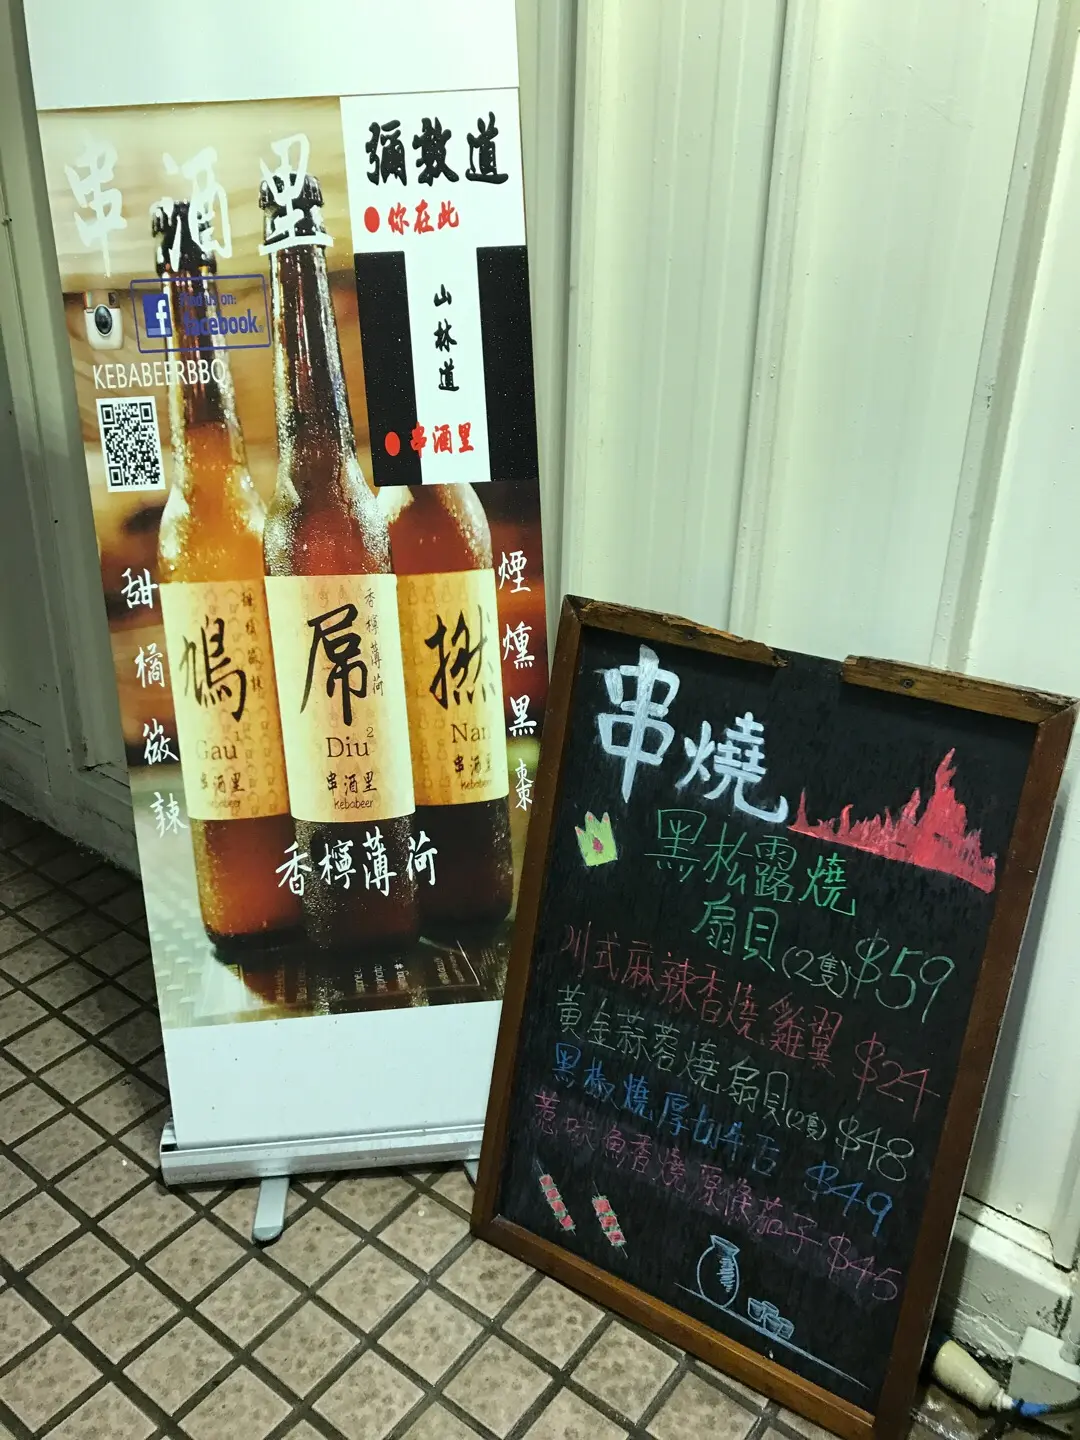 串酒里
彌敦道
你在此
山林道
串酒里
Find us on:
facebook
KEBABEERBBQ
甜橘微辣
鳩
Gau¹
串酒里
kebabeer
香檸薄荷
屌
Diu²
串酒里
kebabeer
撚
Nan
串酒里
kebabeer
煙燻黑棗
香檸薄荷
串燒
黑松露燒
扇貝(2隻)$59
川式麻辣香燒雞翼 $24
黃金蒜蓉燒扇貝(2隻) $48
黑椒燒厚切牛舌 $49
惹味魚香燒原條茄子 $45